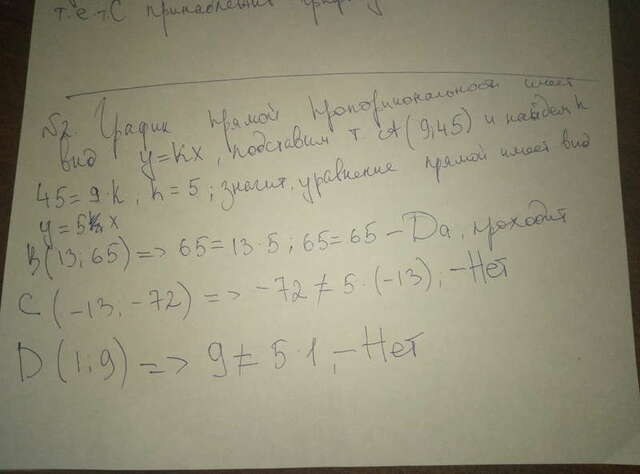 т.е т.С принадлежит
№2. График прямой пропорциональности имеет
вид y=kx, подставим т. A(9;45) и найдём k
45=9·k, k=5; значит, уравнение прямой имеет вид
y=5x
B(13;65) => 65=13·5; 65=65 – Да, проходит
C(-13;-72) => -72≠5·(-13), – Нет
D(1;9) => 9≠5·1, – Нет